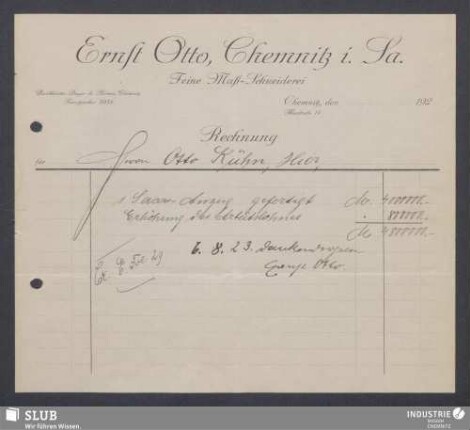 Ernst Otto, Chemnitz i. Sa.
Feine Maß-Schneiderei
Chemnitz, den 192
Rechnung
für Herrn Otto Kühn, Hier
1 Sacco-Anzug gefertigt M. 4000000.-
Erhöhung des Arbeitslohnes " 800000.-
M 4800000.-
6. 8. 23. dankend
Ernst Otto.
SLUB
Wir führen Wissen.
INDUSTRIE
CHEMNITZ